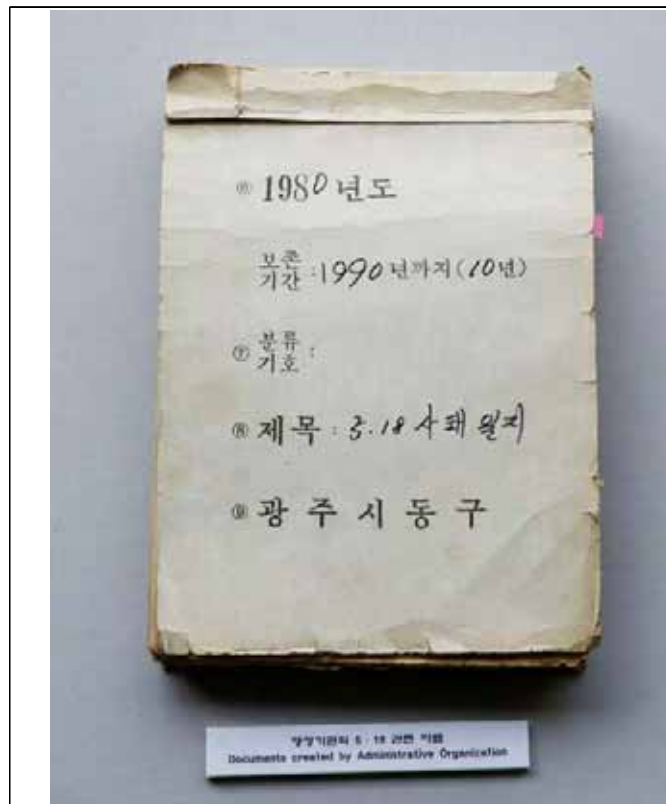 ⑥ 1980 년도
보존
기간 : 1990 년까지 (10년)
⑦ 분류
기호 :
⑧ 제목 : 5.18 사태 일지
⑨ 광 주 시 동 구
행정기관의 5 · 18 관련 기록
Documents created by Administrative Organization